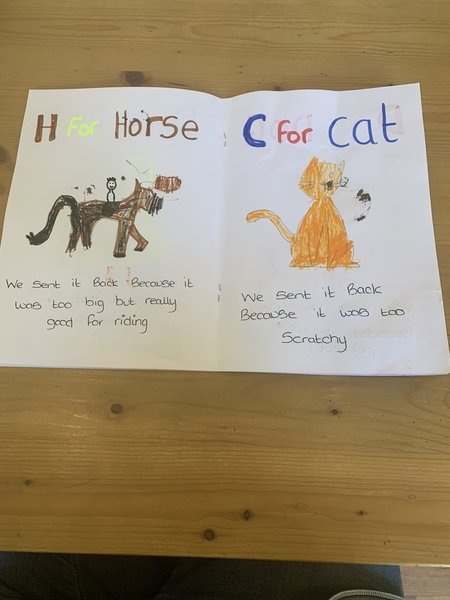 H For Horse
We sent it Back Because it
was too big but really
good for riding
C for cat
We sent it Back
Because it was too
Scratchy